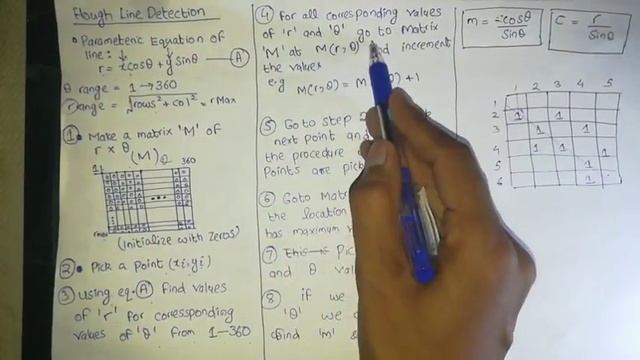 Hough Line Detection
• Parametric Equation of
line:
r = xcosθ + y sinθ — A
θ range = 1 → 360
r range = √rows² + col² = rMax
1 • Make a matrix 'M' of
r × θ
(M) θ 360
(Initialize with Zeros)
2 • Pick a point (xi, yi)
3 Using eq-A find values
of 'r' for corresponding
values of 'θ' from 1—360
4 For all corresponding values
of 'r' and 'θ' go to Matrix
'M' at M(r,θ) and increment
the values
e.g M(r,θ) = M θ) + 1
5 Go to step 2
next point and
the procedure
Points are pic
6 Goto Matr
the location
has maximum
7 Pic
and θ val
8 if we
'θ' we c
find 'm' &
m = -cosθ / sinθ
C = r / sinθ
1 2 3 4 5
1
2 1 1
3 1 1
4 1 1 1
5 1
6 1